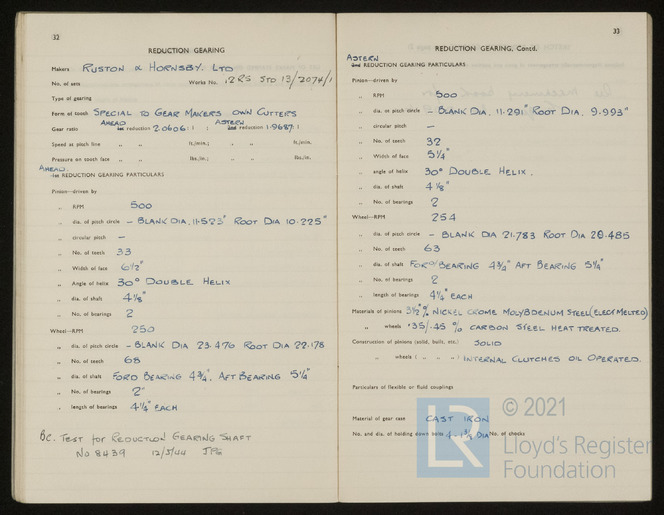 32
REDUCTION GEARING
Makers RUSTON & HORNSBY. LTD
No. of sets Works No. 2RS STD 13/2074/1
Type of gearing
Form of tooth SPECIAL TO GEAR MAKERS OWN CUTTERS
AHEAD ASTERN
Gear ratio 1st reduction 2.0606:1 : 2nd reduction 1.9687:1
Speed at pitch line „ „ ft./min.; „ „ ft./min.
Pressure on tooth face „ „ lbs./in.; „ „ lbs./in.
AHEAD.
1st REDUCTION GEARING PARTICULARS
Pinion—driven by
„ RPM 500
„ dia. of pitch circle – BLANK DIA. 11.523" ROOT DIA 10.225"
„ circular pitch —
„ No. of teeth 33
„ Width of face 6½"
„ Angle of helix 30° DOUBLE HELIX
„ dia. of shaft 4⅛"
„ No. of bearings 2
Wheel—RPM 250
„ dia. of pitch circle – BLANK DIA 23.476 ROOT DIA 22.178
„ No. of teeth 68
„ dia. of shaft FORD BEARING 4¾" AFT BEARING 5¼"
„ No. of bearings 2"
„ length of bearings 4¼" EACH
BC. TEST for REDUCTION GEARING SHAFT
No 8439 12/5/44 JPG
33
REDUCTION GEARING, Contd.
ASTERN
2nd REDUCTION GEARING PARTICULARS
Pinion—driven by
„ RPM 500
„ dia. of pitch circle – BLANK DIA. 11.291" ROOT DIA. 9.993"
„ circular pitch —
„ No. of teeth 32
„ Width of face 5¼"
„ angle of helix 30° DOUBLE HELIX.
„ dia. of shaft 4⅛"
„ No. of bearings 2
Wheel—RPM 254
„ dia. of pitch circle – BLANK DIA 21.783 ROOT DIA 20.485
„ No. of teeth 63
„ dia. of shaft FORD BEARING 4¾" AFT BEARING 5¼"
„ No. of bearings 2
„ length of bearings 4¼" EACH
Materials of pinions 3½% NICKEL CROME MOLYBDENUM STEEL (ELEC MELTED)
„ wheels .35/.45 % CARBON STEEL HEAT TREATED.
Construction of pinions (solid, built, etc.) SOLID
„ wheels ( „ „ „ ) INTERNAL CLUTCHES OIL OPERATED.
Particulars of flexible or fluid couplings
Material of gear case CAST IRON
No. and dia. of holding down bolts 4 - 1⅜ DIA No. of chocks
LR
© 2021
Lloyd's Register
Foundation